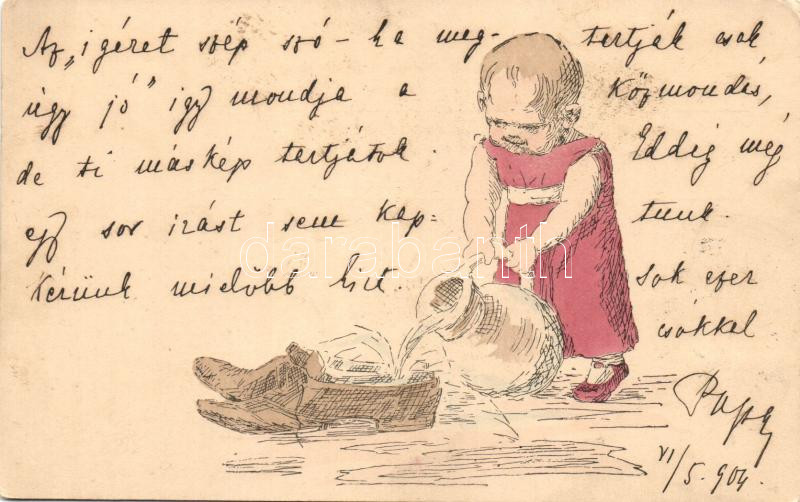 Az „igéret szép szó – ha meg- tertják csak
úgy jó" igy mondja a Közmondás,
de ti máskép tertjátok. Eddig még
egy sor irást sem kap- tunk.
Kérünk mielőbb hírt. Sok ezer
csókkal
Papa
VI/5. 904.
darabanth